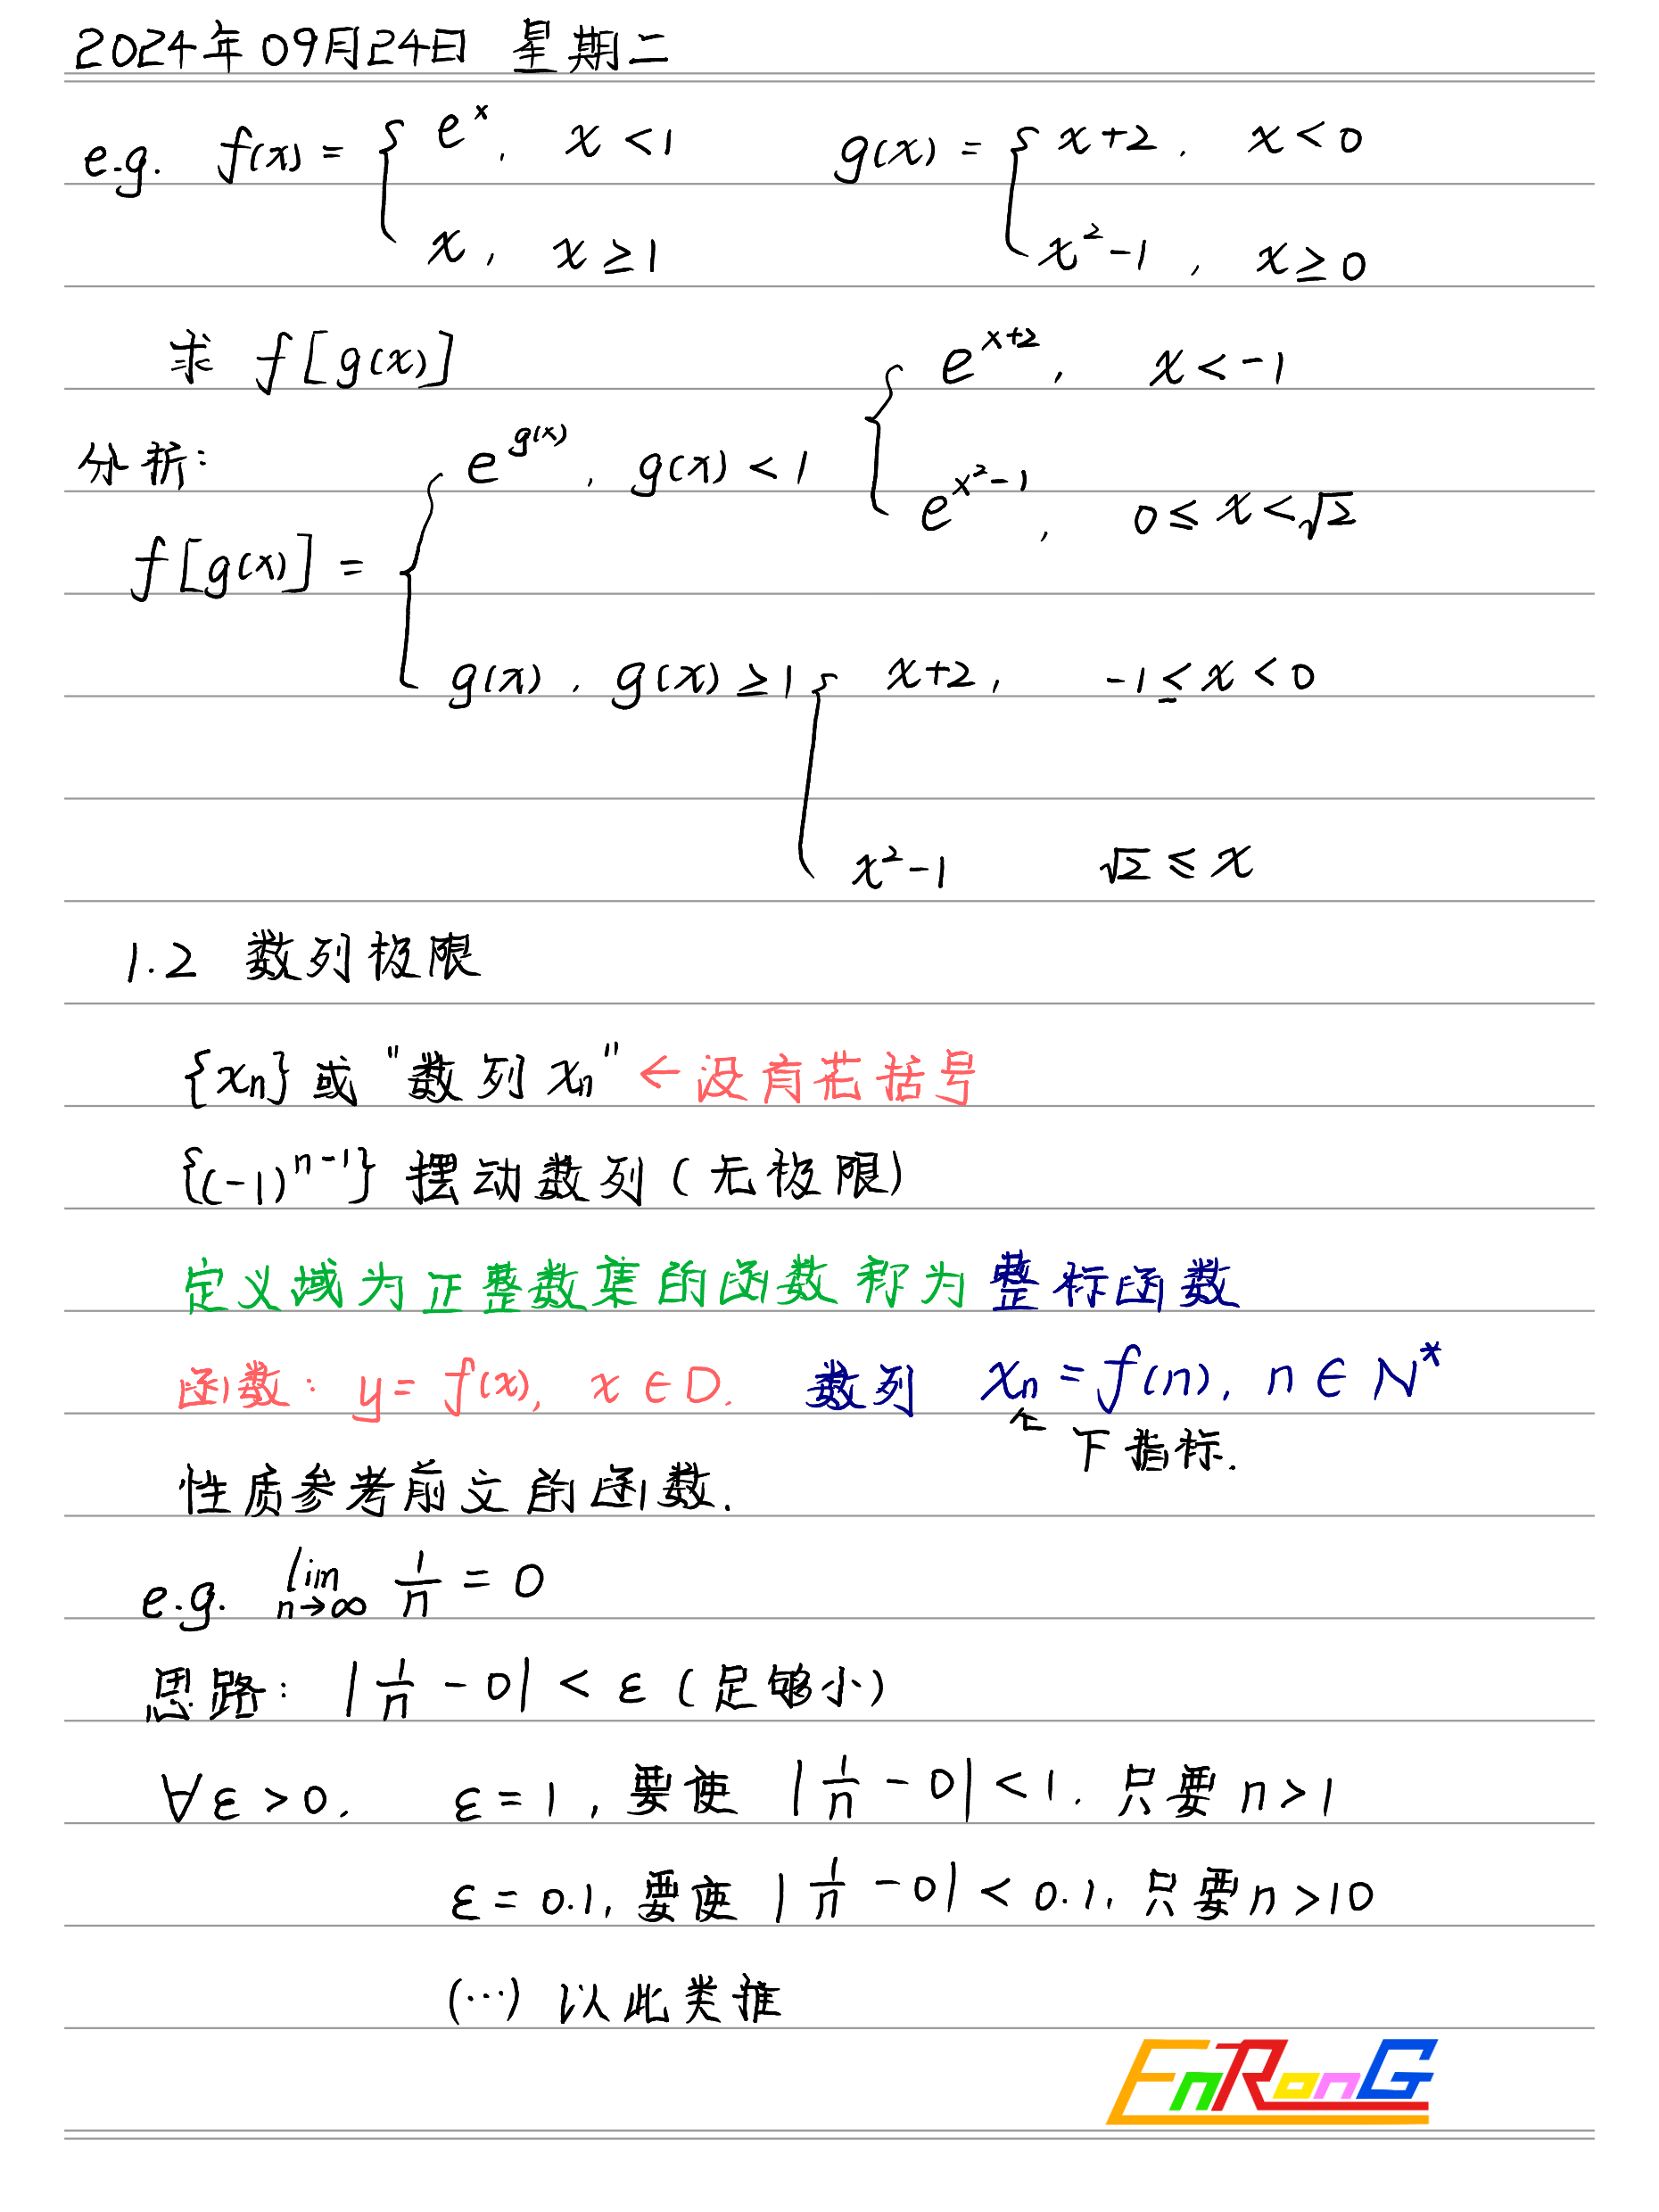 2024年09月24日 星期二
e.g. f(x) = { e^x, x < 1 g(x) = { x+2, x < 0
x, x ≥ 1 x²-1, x ≥ 0
求 f[g(x)] { e^{x+2}, x < -1
分析: { e^{g(x)}, g(x) < 1 e^{x²-1}, 0 ≤ x < √2
f[g(x)] =
g(x), g(x) ≥ 1 { x+2, -1 ≤ x < 0
x²-1 √2 ≤ x
1.2 数列极限
{xₙ} 或 "数列 xₙ" ← 没有花括号
{(-1)^{n-1}} 摆动数列 (无极限)
定义域为正整数集的函数称为整标函数
函数: y = f(x), x ∈ D. 数列 xₙ = f(n), n ∈ N*
↑ 下指标.
性质参考前文的函数.
e.g. lim_{n→∞} 1/n = 0
思路: |1/n - 0| < ε (足够小)
∀ε > 0. ε = 1, 要使 |1/n - 0| < 1. 只要 n > 1
ε = 0.1, 要使 |1/n - 0| < 0.1, 只要 n > 10
(…) 以此类推
EnRonG